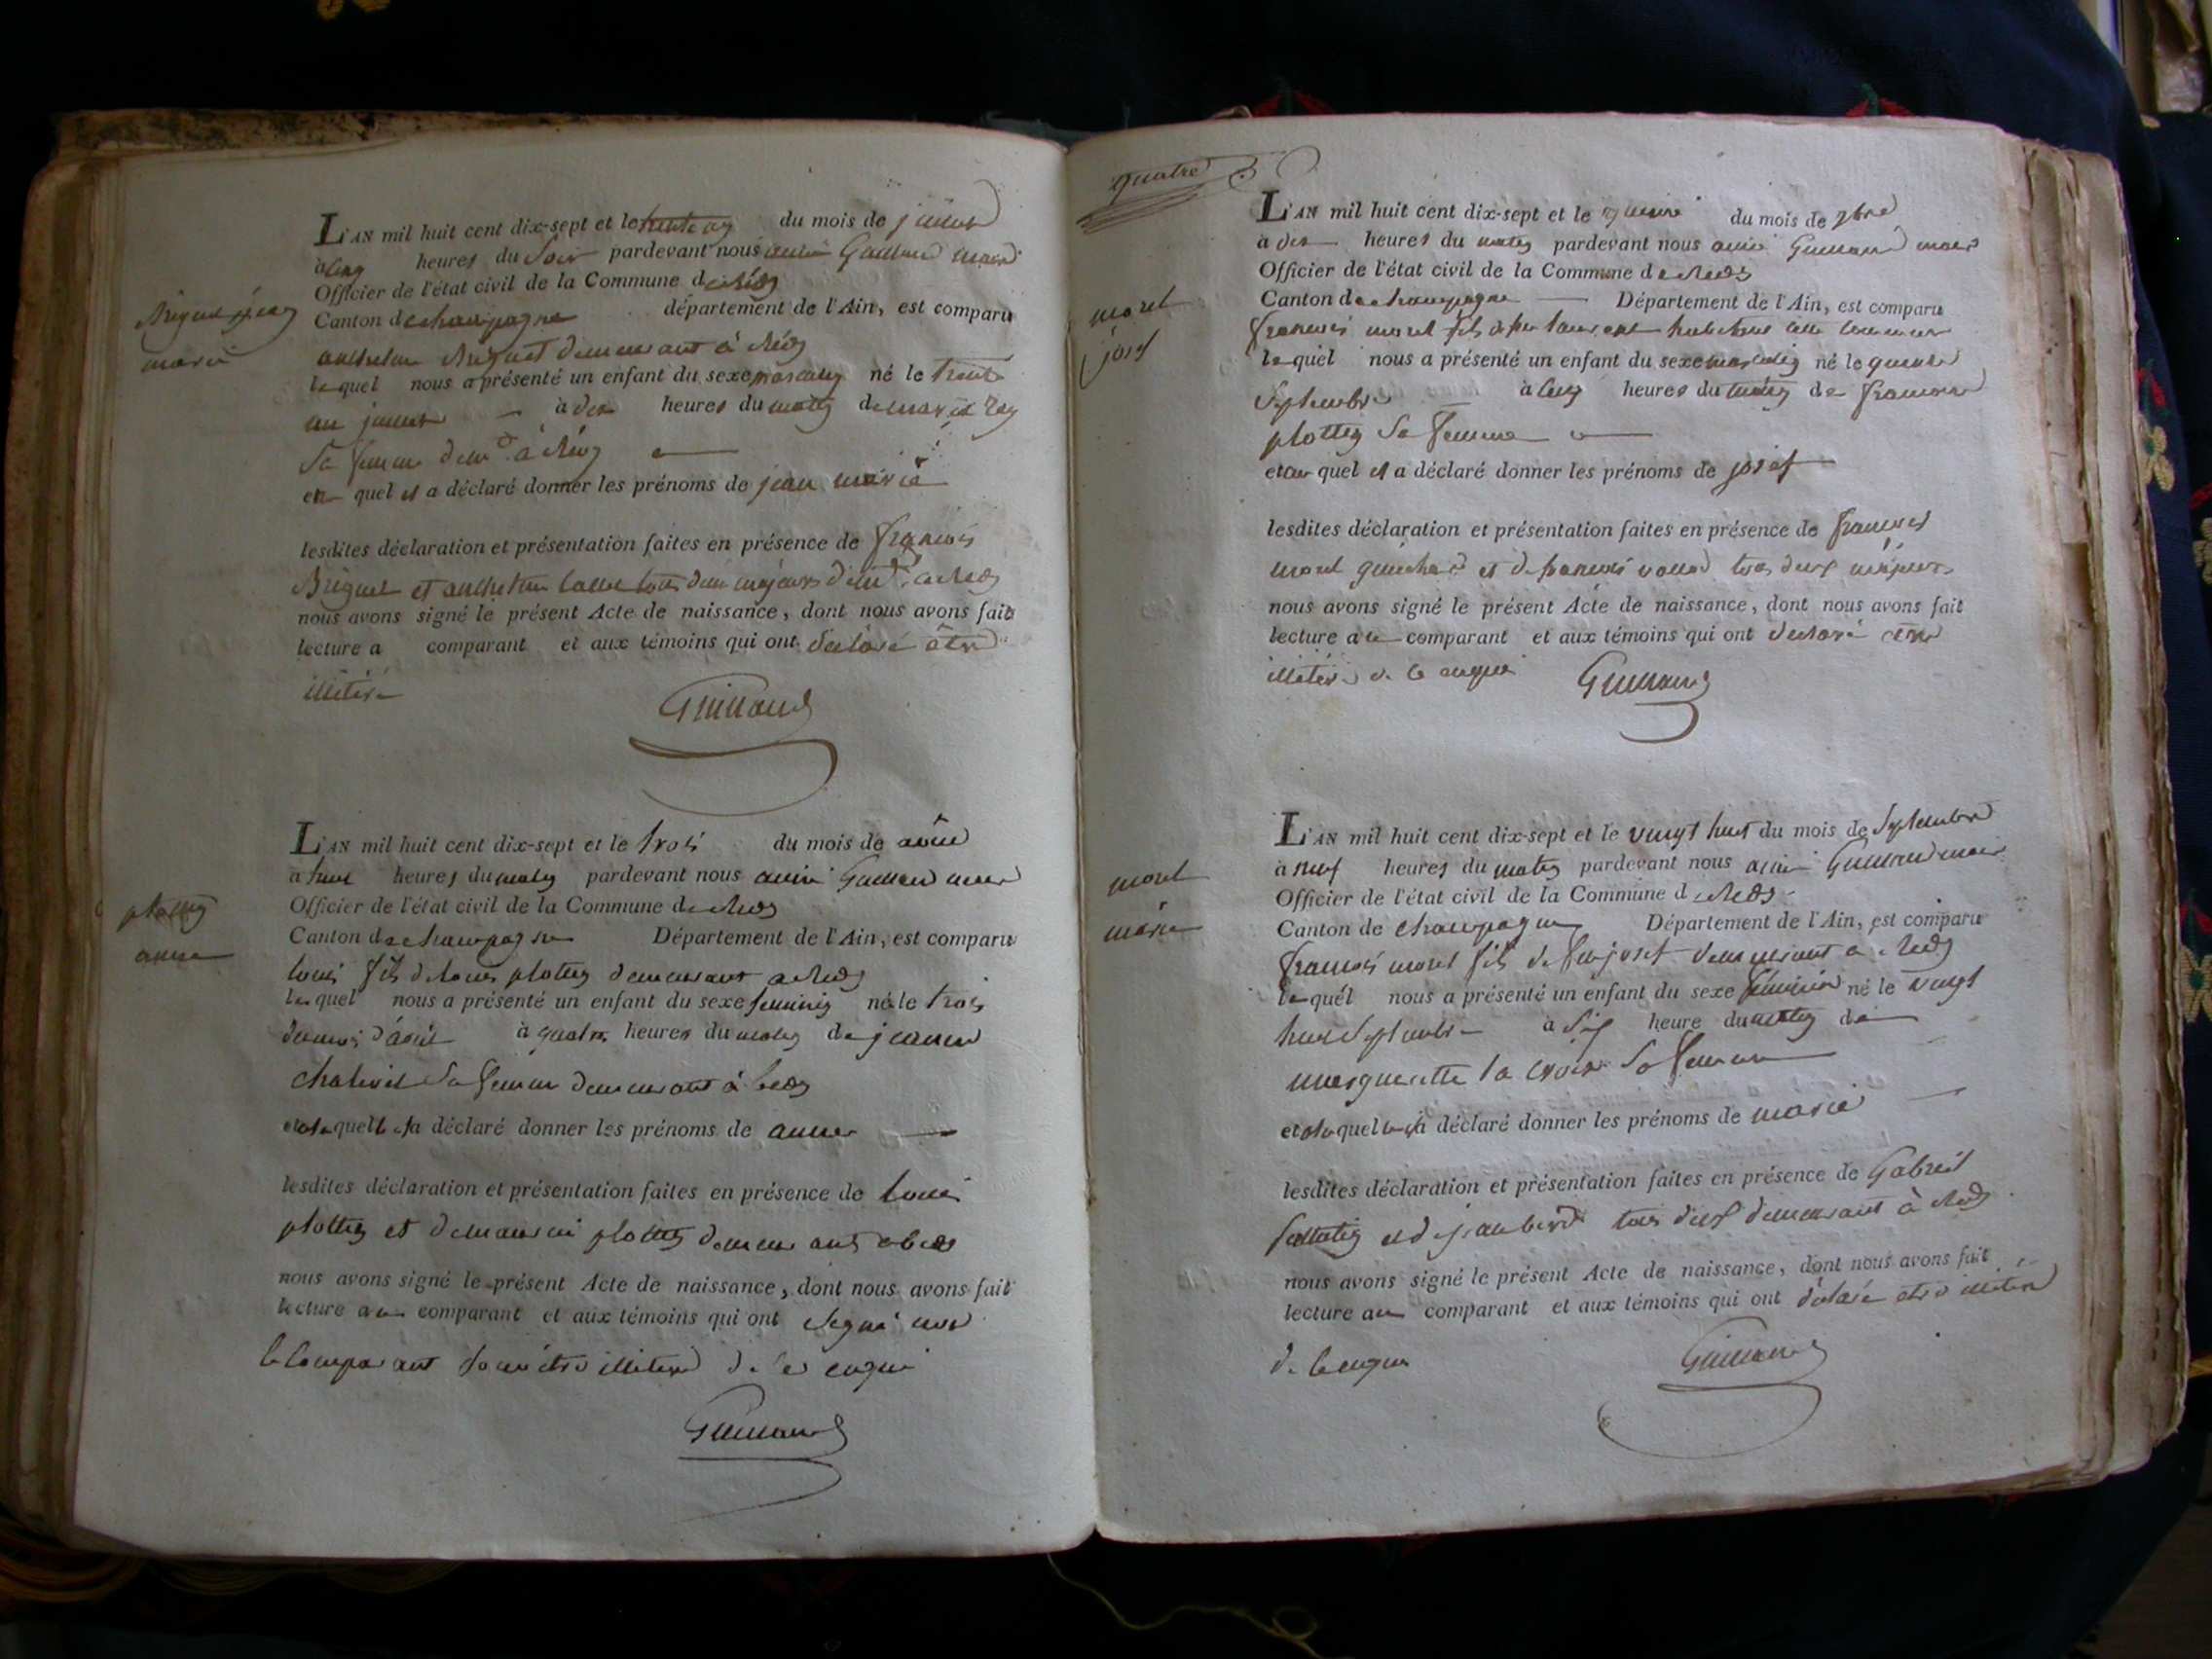 L'AN mil huit cent dix-sept et le trente un du mois de
à cinq heures du Soir pardevant nous Guilland maire
Officier de l'état civil de la Commune de
Canton de champagne département de l'Ain, est comparu
anthelme Briguet demeurant à
lequel nous a présenté un enfant du sexe masculin né le trente
un à dix heures du matin de marie
Sa femme
quel il a déclaré donner les prénoms de jean marie
lesdites déclaration et présentation faites en présence de françois
Briguet et anthelme tous deux majeurs
nous avons signé le présent Acte de naissance, dont nous avons fait
lecture a comparant et aux témoins qui ont déclaré être
illitéré
Guilland
Briguet jean
marie
L'AN mil huit cent dix-sept et le trois du mois de août
a huit heures du matin pardevant nous Guilland maire
Officier de l'état civil de la Commune de
Canton de champagne Département de l'Ain, est comparu
louis fils de louis plottin demeurant a
lequel nous a présenté un enfant du sexe feminin né le trois
du mois d'août à quatre heures du matin de jeanne
Sa femme demeurant à
quelle il a déclaré donner les prénoms de anne
lesdites déclaration et présentation faites en présence de louis
plottin et de plottin demeurant
nous avons signé le présent Acte de naissance, dont nous avons fait
lecture au comparant et aux témoins qui ont Signé non
le comparant pour être illitéré de ce enquis
Guilland
plottin
anne
quatre
L'AN mil huit cent dix-sept et le quinze du mois de 7bre
à dix heures du matin pardevant nous Guilland maire
Officier de l'état civil de la Commune de
Canton de champagne Département de l'Ain, est comparu
françois morel fils de feu laurent
lequel nous a présenté un enfant du sexe masculin né le quinze
Septembre à cinq heures du matin de françoise
plottin Sa femme
et au quel il a déclaré donner les prénoms de josef
lesdites déclaration et présentation faites en présence de françois
morel et de françois tous deux majeurs
nous avons signé le présent Acte de naissance, dont nous avons fait
lecture au comparant et aux témoins qui ont declaré etre
illitéré de ce enquis
Guilland
morel
josef
L'AN mil huit cent dix-sept et le vingt huit du mois de Septembre
à neuf heures du matin pardevant nous Guilland maire
Officier de l'état civil de la Commune de
Canton de champagne Département de l'Ain, est comparu
françois morel fils de feu josef demeurant a
lequel nous a présenté un enfant du sexe féminin né le vingt
huit Septembre à Six heure du matin de
marguerite la croix Sa femme
et a laquelle il a déclaré donner les prénoms de marie
lesdites déclaration et présentation faites en présence de Gabriel
et de jean tous deux demeurant à
nous avons signé le présent Acte de naissance, dont nous avons fait
lecture au comparant et aux témoins qui ont déclaré etre illitéré
de ce enquis
Guilland
morel
marie